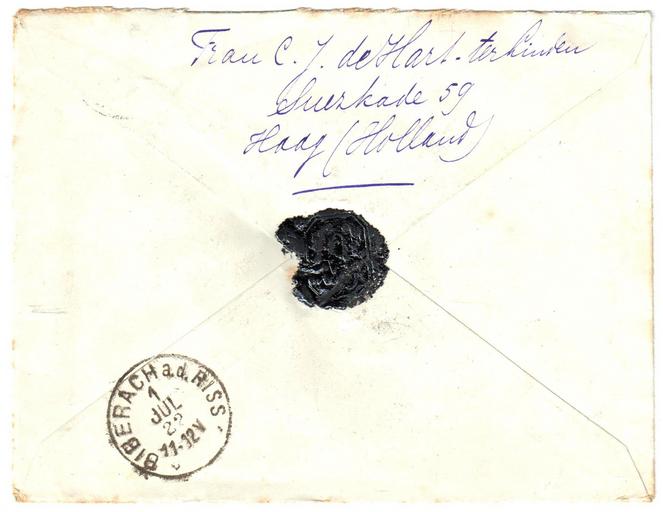 Frau C. J. de Hart-terLinden
Suezkade 59
Haag (Holland)
BIBERACH a.d. RISS
1
JUL
22
11-12V